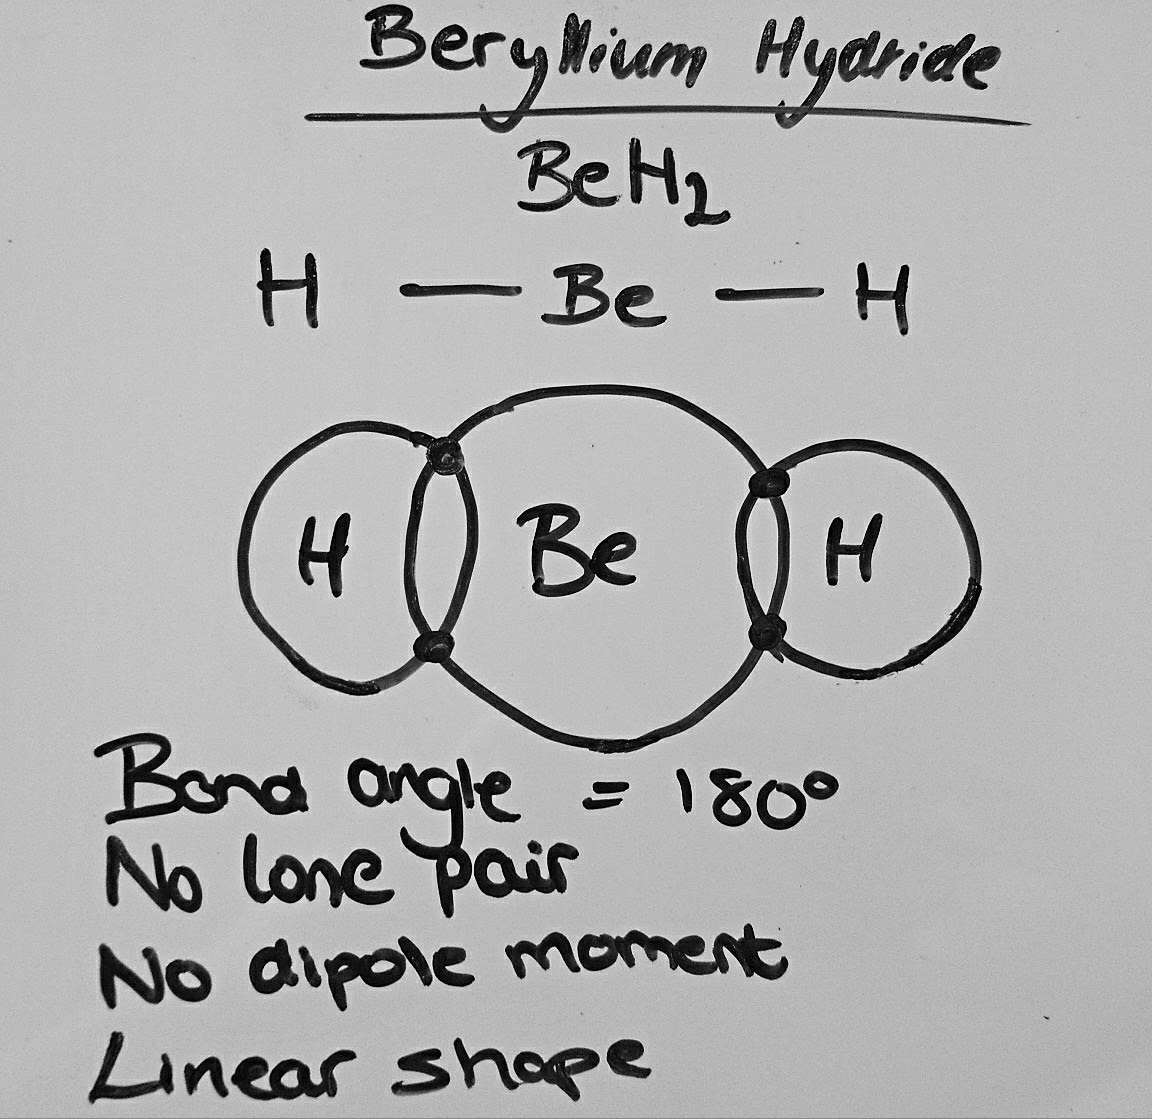 Beryllium Hydride
BeH₂
H — Be — H
H Be H
Bond angle = 180°
No lone pair
No dipole moment
Linear shape